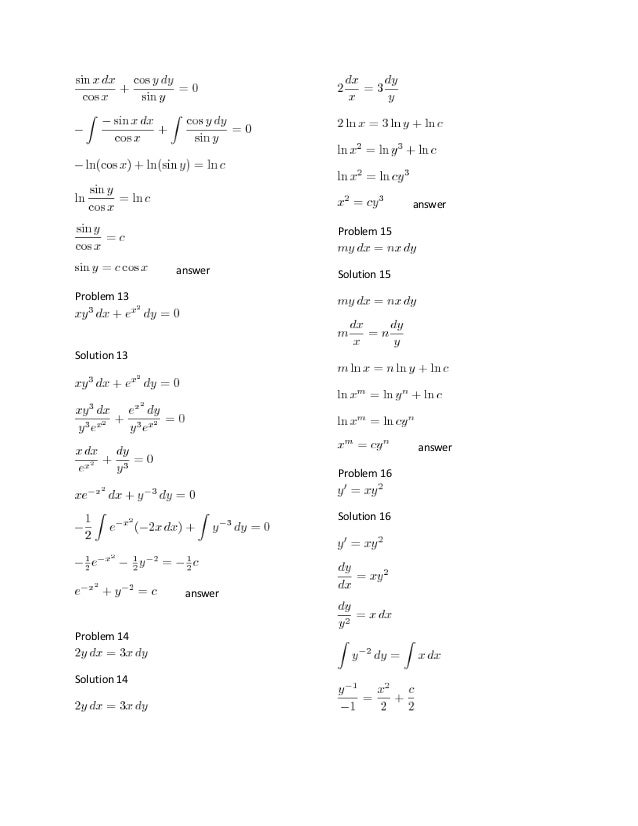 sin x dx / cos x + cos y dy / sin y = 0
−∫ −sin x dx / cos x + ∫ cos y dy / sin y = 0
−ln(cos x) + ln(sin y) = ln c
ln sin y / cos x = ln c
sin y / cos x = c
sin y = c cos x answer
Problem 13
xy³ dx + e^{x²} dy = 0
Solution 13
xy³ dx + e^{x²} dy = 0
xy³ dx / y³e^{x²} + e^{x²} dy / y³e^{x²} = 0
x dx / e^{x²} + dy / y³ = 0
xe^{−x²} dx + y⁻³ dy = 0
−1/2 ∫ e^{−x²}(−2x dx) + ∫ y⁻³ dy = 0
−½e^{−x²} − ½y⁻² = −½c
e^{−x²} + y⁻² = c answer
Problem 14
2y dx = 3x dy
Solution 14
2y dx = 3x dy
2 dx / x = 3 dy / y
2 ln x = 3 ln y + ln c
ln x² = ln y³ + ln c
ln x² = ln cy³
x² = cy³ answer
Problem 15
my dx = nx dy
Solution 15
my dx = nx dy
m dx / x = n dy / y
m ln x = n ln y + ln c
ln xᵐ = ln yⁿ + ln c
ln xᵐ = ln cyⁿ
xᵐ = cyⁿ answer
Problem 16
y′ = xy²
Solution 16
y′ = xy²
dy / dx = xy²
dy / y² = x dx
∫ y⁻² dy = ∫ x dx
y⁻¹ / −1 = x² / 2 + c / 2